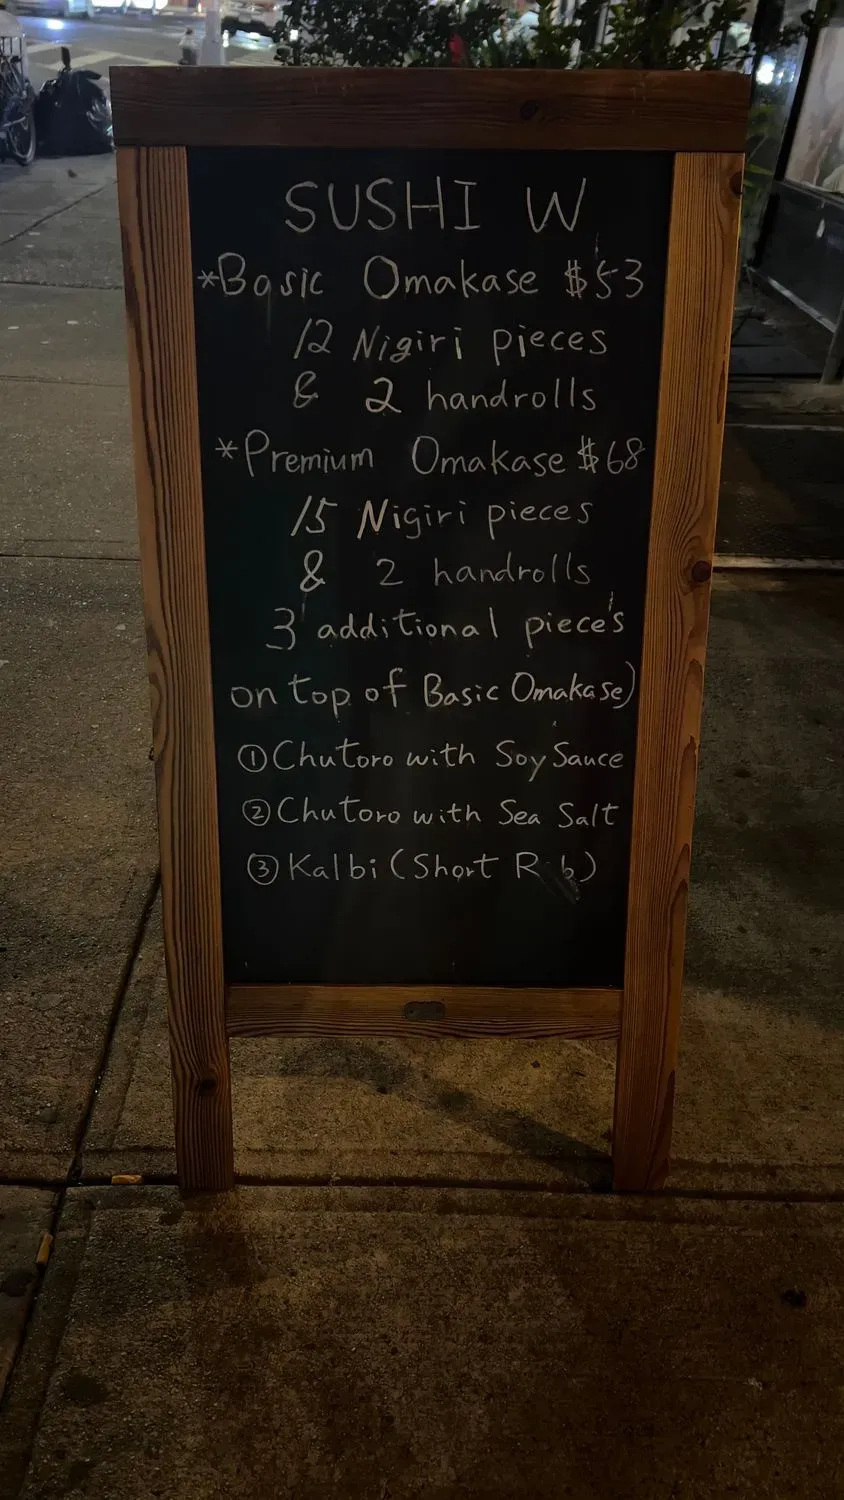 SUSHI W
*Basic Omakase $53
12 Nigiri pieces
& 2 handrolls
*Premium Omakase $68
15 Nigiri pieces
& 2 handrolls
3 additional pieces
on top of Basic Omakase)
① Chutoro with Soy Sauce
② Chutoro with Sea Salt
③ Kalbi (Short R b)